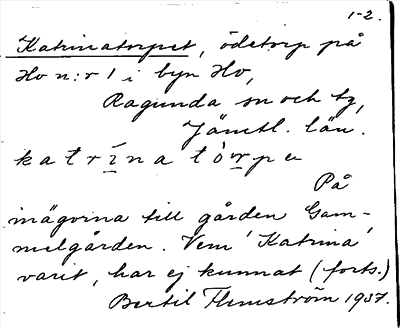 1-2.
Katrinatorpet, ödetorp på
Ho n:r 1 i byn Ho,
Ragunda sn och tg,
Jämtl. län.
katrīna tòrpe
På
inägorna till gården Gam-
melgården. Vem 'Katrina'
varit, har ej kunnat (forts.)
Bertil Flemström 1937.